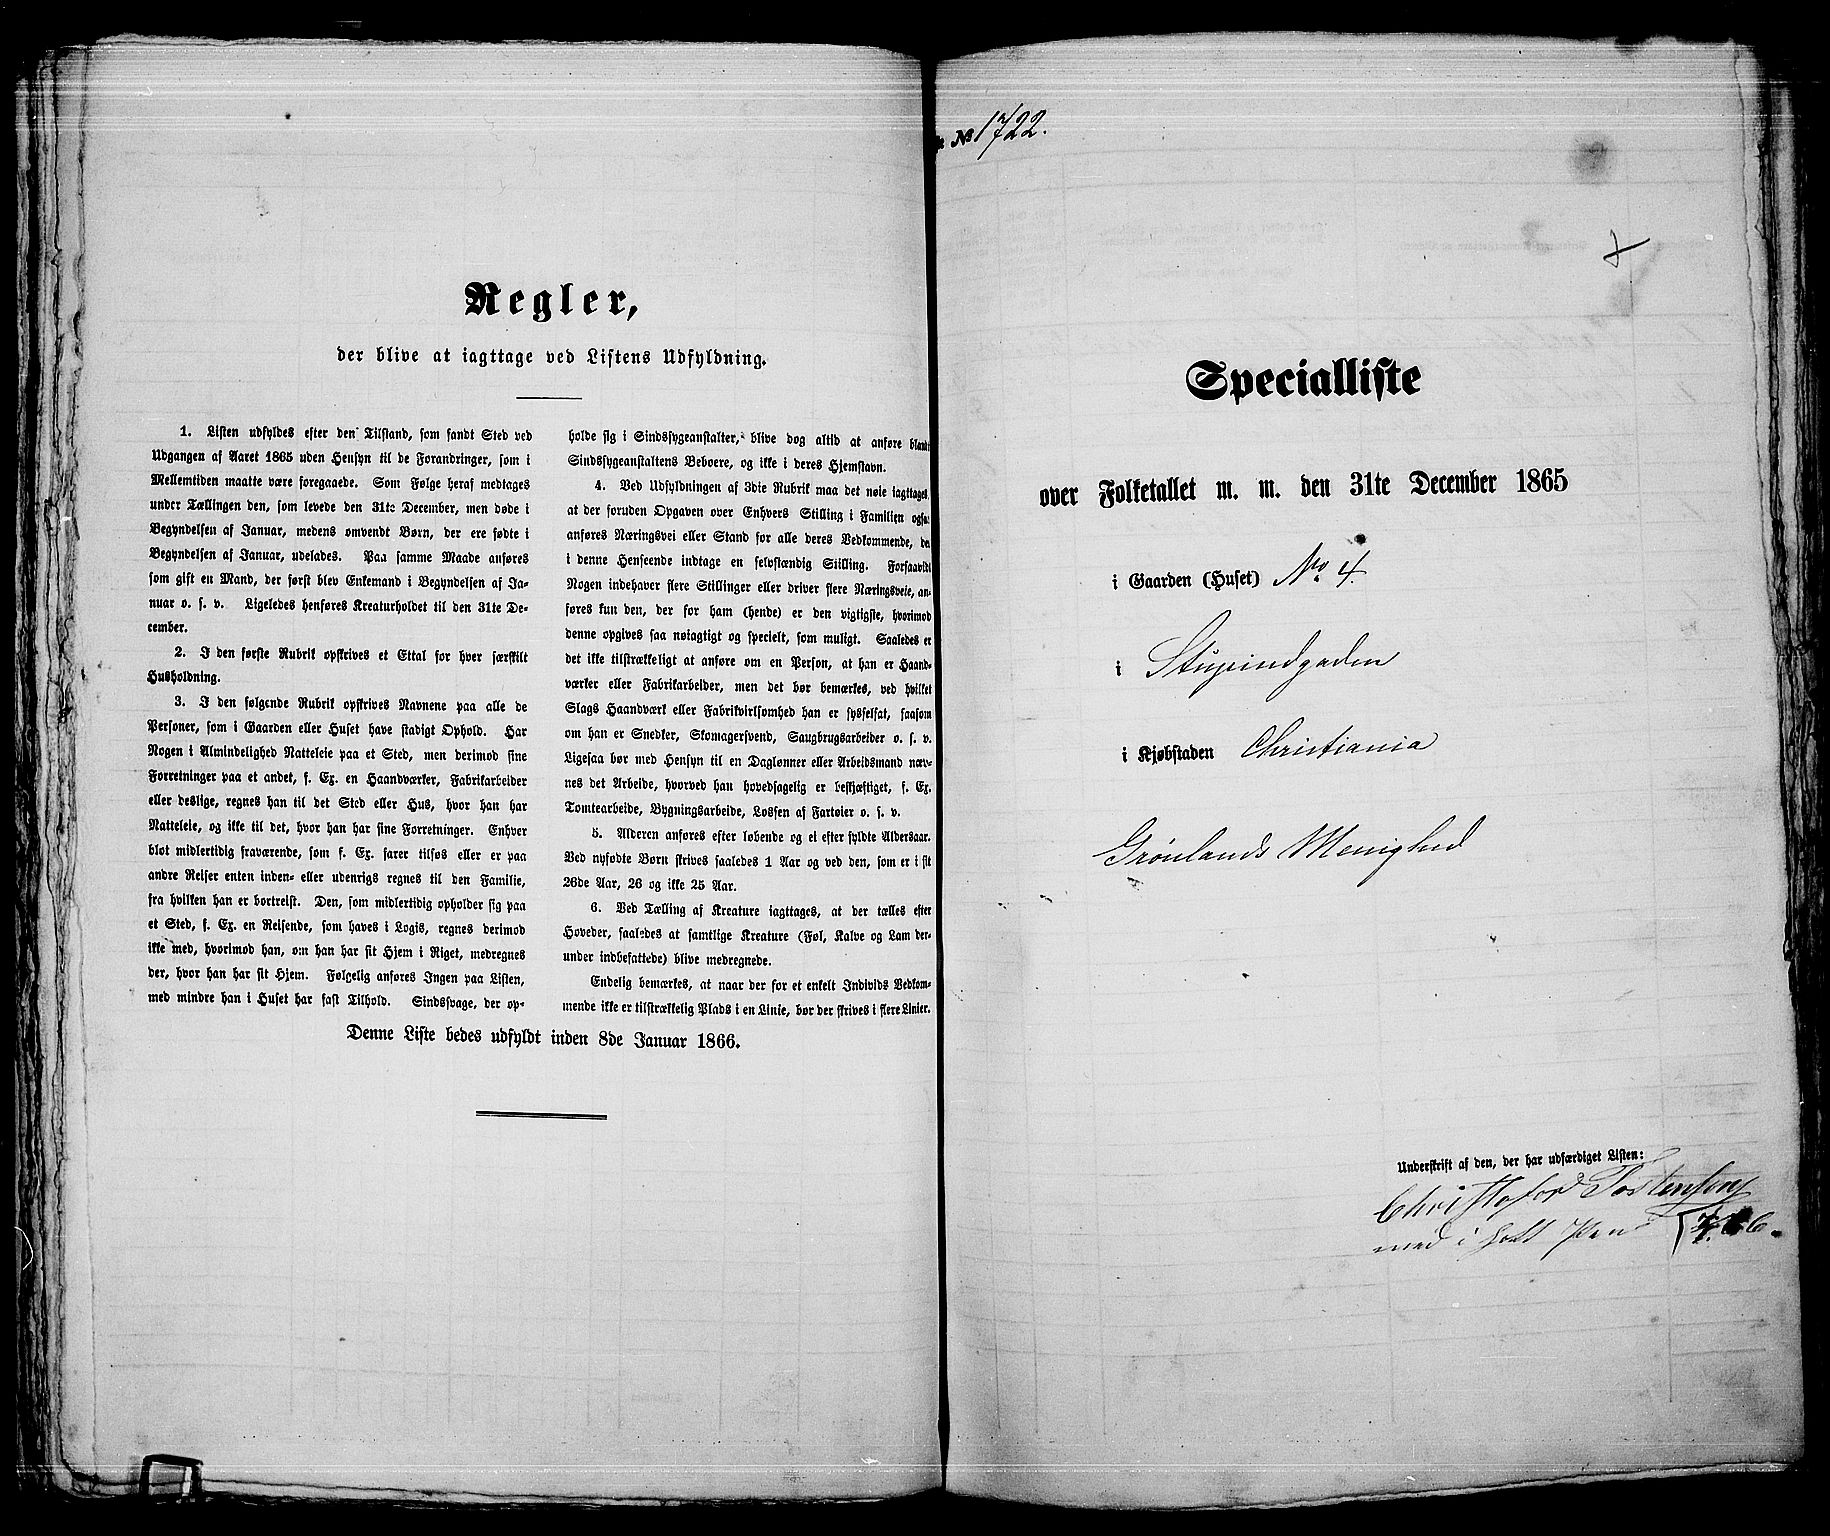 Regler,
der blive at iagttage ved Listens Udfyldning.
1. Listen udfyldes efter den Tilstand, som fandt Sted ved
Udgangen af Aaret 1865 uden Hensyn til de Forandringer, som i
Mellemtiden maatte være foregaaede. Som Følge heraf medtages
under Tællingen den, som levede den 31te December, men døde i
Begyndelsen af Januar, medens omvendt Børn, der ere fødte i
Begyndelsen af Januar, udelades. Paa samme Maade anføres
som gift en Mand, der først blev Enkemand i Begyndelsen af Ja-
nuar o. s. v. Ligeledes henføres Kreaturholdet til den 31te De-
cember.
2. I den første Rubrik opskrives et Ettal for hver særskilt
Husholdning.
3. I den følgende Rubrik opskrives Navnene paa alle de
Personer, som i Gaarden eller Huset have stadigt Ophold. Har
Nogen i Almindelighed Natteleie paa et Sted, men derimod sine
Forretninger paa et andet, f. Ex. en Haandværker, Fabrikarbeider
eller deslige, regnes han til det Sted eller Hus, hvor han har
Natteleie, og ikke til det, hvor han har sine Forretninger. Enhver
blot midlertidig fraværende, som f. Ex. farer tilsøs eller er paa
andre Reiser enten inden- eller udenrigs regnes til den Familie,
fra hvilken han er bortreist. Den, som midlertidig opholder sig paa
et Sted, f. Ex. en Reisende, som haves i Logis, regnes derimod
ikke med, hvorimod han, om han har sit Hjem i Riget, medregnes
der, hvor han har sit Hjem. Følgelig anføres Ingen paa Listen,
med mindre han i Huset har fast Tilhold. Sindssvage, der op-
holde sig i Sindssygeanstalter, blive dog altid at anføre blandt
Sindssygeanstaltens Beboere, og ikke i deres Hjemstavn.
4. Ved Udfyldningen af 3die Rubrik maa det nøie iagttages,
at der foruden Opgaven over Enhvers Stilling i Familien ogsaa
anføres Næringsvei eller Stand for alle deres Vedkommende, de
i denne Henseende indtage en selvstændig Stilling. Forsaavidt
Nogen indehaver flere Stillinger eller driver flere Næringsveie, an-
føres kun den, der for ham (hende) er den vigtigste, hvorimod
denne opgives saa nøiagtigt og specielt, som muligt. Saaledes er
det ikke tilstrækkeligt at anføre om en Person, at han er Haand-
værker eller Fabrikarbeider, men det bør bemærkes, ved hvilket
Slags Haandværk eller Fabrikvirksomhed han er sysselsat, saasom
om han er Snedker, Skomagersvend, Saugbrugsarbeider o. s. v.
Ligesaa bør med Hensyn til en Daglønner eller Arbeidsmand næv-
nes det Arbeide, hvorved han hovedsagelig er beskjæftiget, f. Ex.
Tomtearbeide, Bygningsarbeide, Lossen af Fartøier o. s. v.
5. Alderen anføres efter løbende og ei efter fyldte Aldersaar.
Ved nyfødte Børn skrives saaledes 1 Aar og ved den, som er i sit
26de Aar, 26 og ikke 25 Aar.
6. Ved Tælling af Kreature iagttages, at der tælles efter
Hoveder, saaledes at samtlige Kreature (Føl, Kalve og Lam der-
under indbefattede) blive medregnede.
Endelig bemærkes, at naar der for et enkelt Individs Vedkom-
mende ikke er tilstrækkelig Plads i en Linie, bør der skrives i flere Linier.
Denne Liste bedes udfyldt inden 8de Januar 1866.
№ 1722.
Specialliste
over Folketallet m. m. den 31te December 1865
i Gaarden (Huset) No 4.
i Stupindgaden
i Kjøbstaden Christiania
Grønlands Menighed
Underskrift af den, der har udfærdiget Listen:
Christofer Tostensen
med i holt Pen